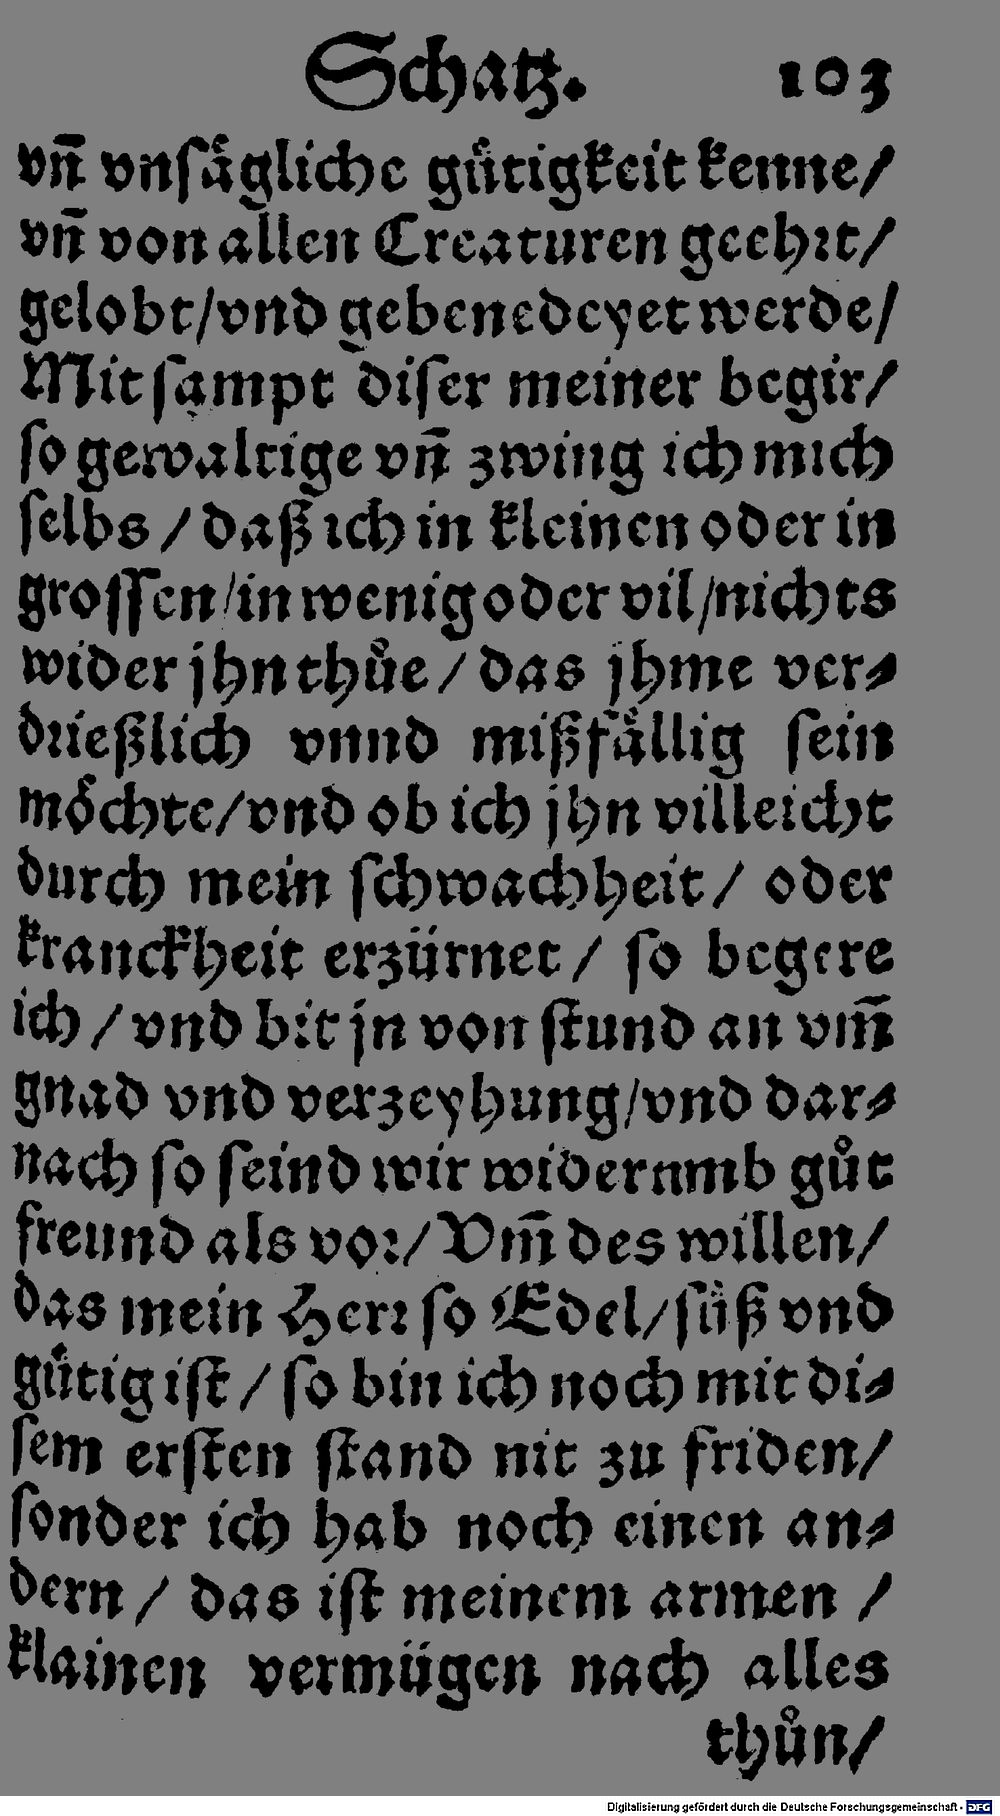 Schatz. 103
vn̄ vnſaͤgliche guͤtigkeit kenne/
vn̄ von allen Creaturen geehꝛt/
gelobt/vnd gebenedeyet werde/
Mit ſampt diſer meiner begir/
ſo gewaltige vn̄ zwing ich mich
ſelbs / daß ich in kleinen oder in
groſſen/in wenig oder vil/nichts
wider jhn thuͦe / das jhme ver⸗
dꝛießlich vnnd mißfaͤllig ſein
moͤchte/vnd ob ich jhn villeicht
durch mein ſchwachheit / oder
kranckheit erzürnet / ſo begere
ich / vnd bit jn von ſtund an vm̄
gnad vnd verzeyhung/vnd dar⸗
nach ſo ſeind wir widerumb guͦt
freund als voꝛ/ Vm̄ des willen/
das mein Herꝛ ſo Edel/ſuͤß vnd
guͤtig iſt / ſo bin ich noch mit di⸗
ſem erſten ſtand nit zu friden/
ſonder ich hab noch einen an⸗
dern / das iſt meinem armen /
klainen vermügen nach alles
thuͦn/
Digitalisierung gefördert durch die Deutsche Forschungsgemeinschaft - DFG